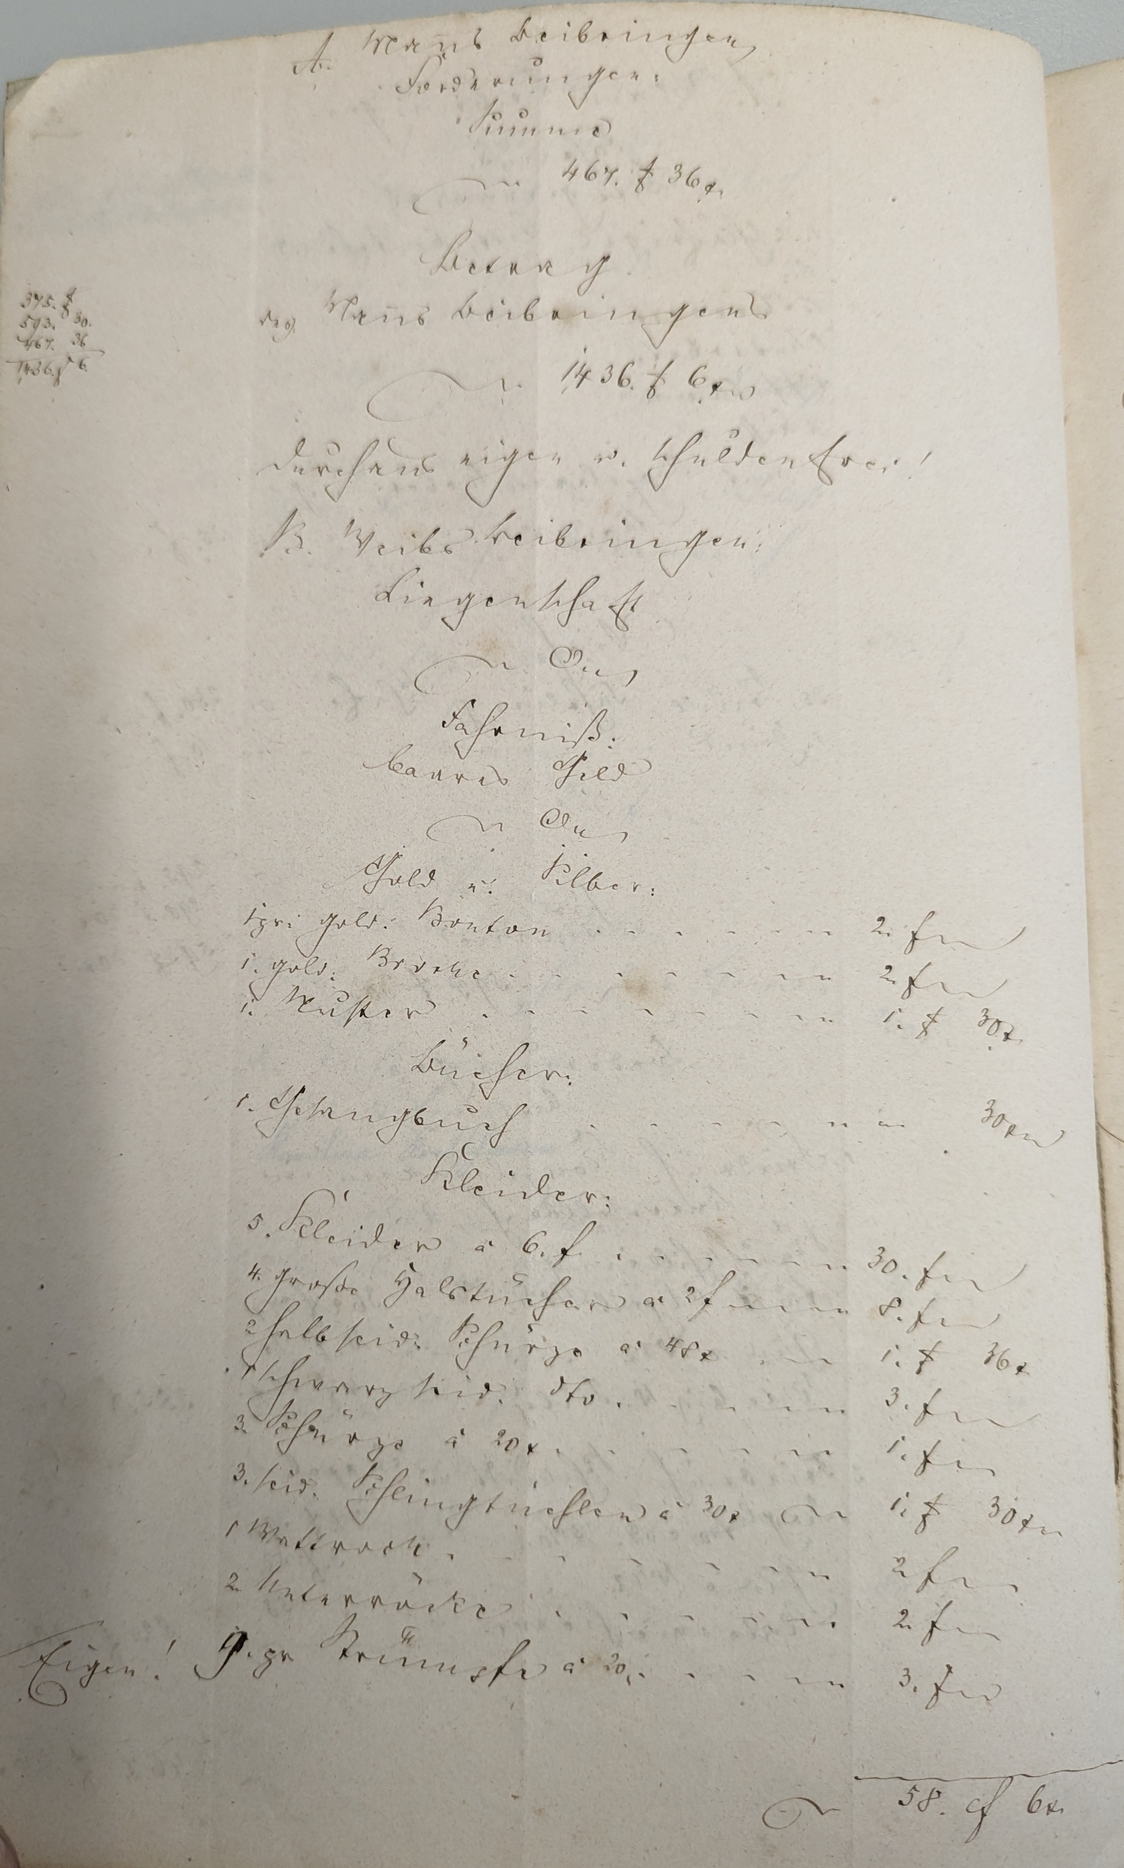 A. Mañs Beibringen,
Forderungen:
Summe
467. f 36x.
Betrag
des Mañs Beibringens
375. f
593. 30.
467. 36
1436. f 6.
1436. f 6x
durchaus eigen u. schuldenfrei!
B. Weibs Beibringen:
Liegenschaft
Fahrniß:
baares Geld
Gold u. Silber:
1 pr: gold: Bouton . . . . . . 2. f
1. gold: Broche . . . . . . 2 f
1. Nuster . . . . . . . 1. f 30x.
Bücher:
1. Gesangbuch . . . . . . 30x
Kleider:
5. Kleider à 6. f . . . . . 30. f
4. große Halstücher à 2 f 8. f
2 halbseid: Schürze à 48x 1. f 36x
1 schwarz seid: dto . . . . . 3. f
3. Schürze à 20x . . . . . 1. f
3. seid. Schlingtüchlen à 30x 1. f 30x
1 Wattrock . . . . . . 2 f
2 Unterröcke . . . . . 2. f
Eigen! 9. pr Strümpfe à 20. . . . . 3. f
58. f 6x.